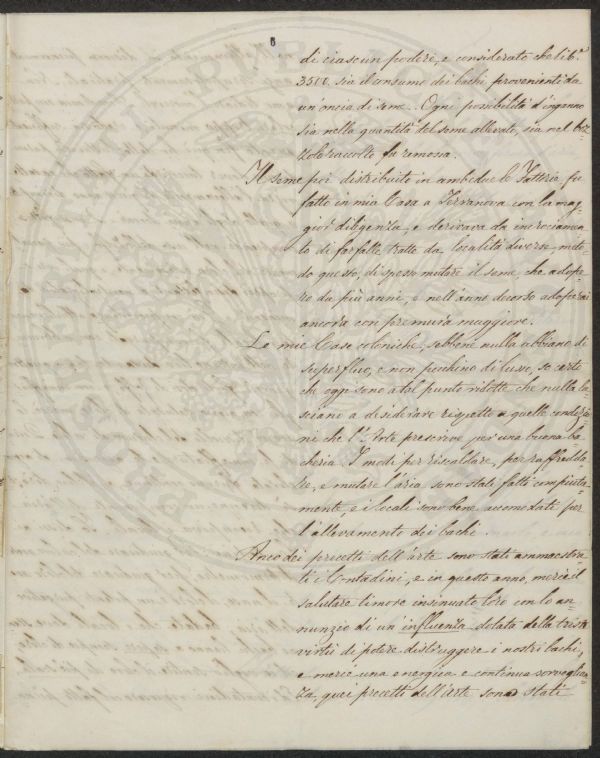 di ciascun podere, e considerato che lib.e
3500. sia il consumo dei bachi provenienti da
un'oncia di seme. Ogni possibilità d'inganno
sia nella quantità del seme allevato, sia nel boz=
zolo raccolto fu remossa.
Il seme poi distribuito in ambedue le Fattorie fu
fatto in mia Casa a Terranova con la mag=
gior diligenza, e derivava da incrociamen=
to di farfalle tratte da località diverse, meto=
do questo, di spesso mutare il seme, che adope=
ro da più anni, e nell'anno decorso adoperai
ancora con premura maggiore.
Le mie Case coloniche, sebbene nulla abbiano di
superfluo, e non pecchino di lusso, so certo
che oggi sono a tal punto ridotte che nulla la=
sciano a desiderare rispetto a quelle condizio=
ni che l'Arte prescrive per una buona ba=
cheria. I modi per riscaldare, per raffredda=
re, e mutare l'aria sono stati fatti compiuta=
mente, e i locali sono bene accomodati per
l'allevamento dei bachi.
Anco dei precetti dell'arte sono stati ammaestra=
ti i Contadini, e in questo anno, mercè il
salutare timore insinuato loro con lo an=
nunzio di un'influenza dotata della trista
virtù di potere distruggere i nostri bachi,
e mercè una energica e continua sorveglian=
za, quei precetti dell'arte sono stati